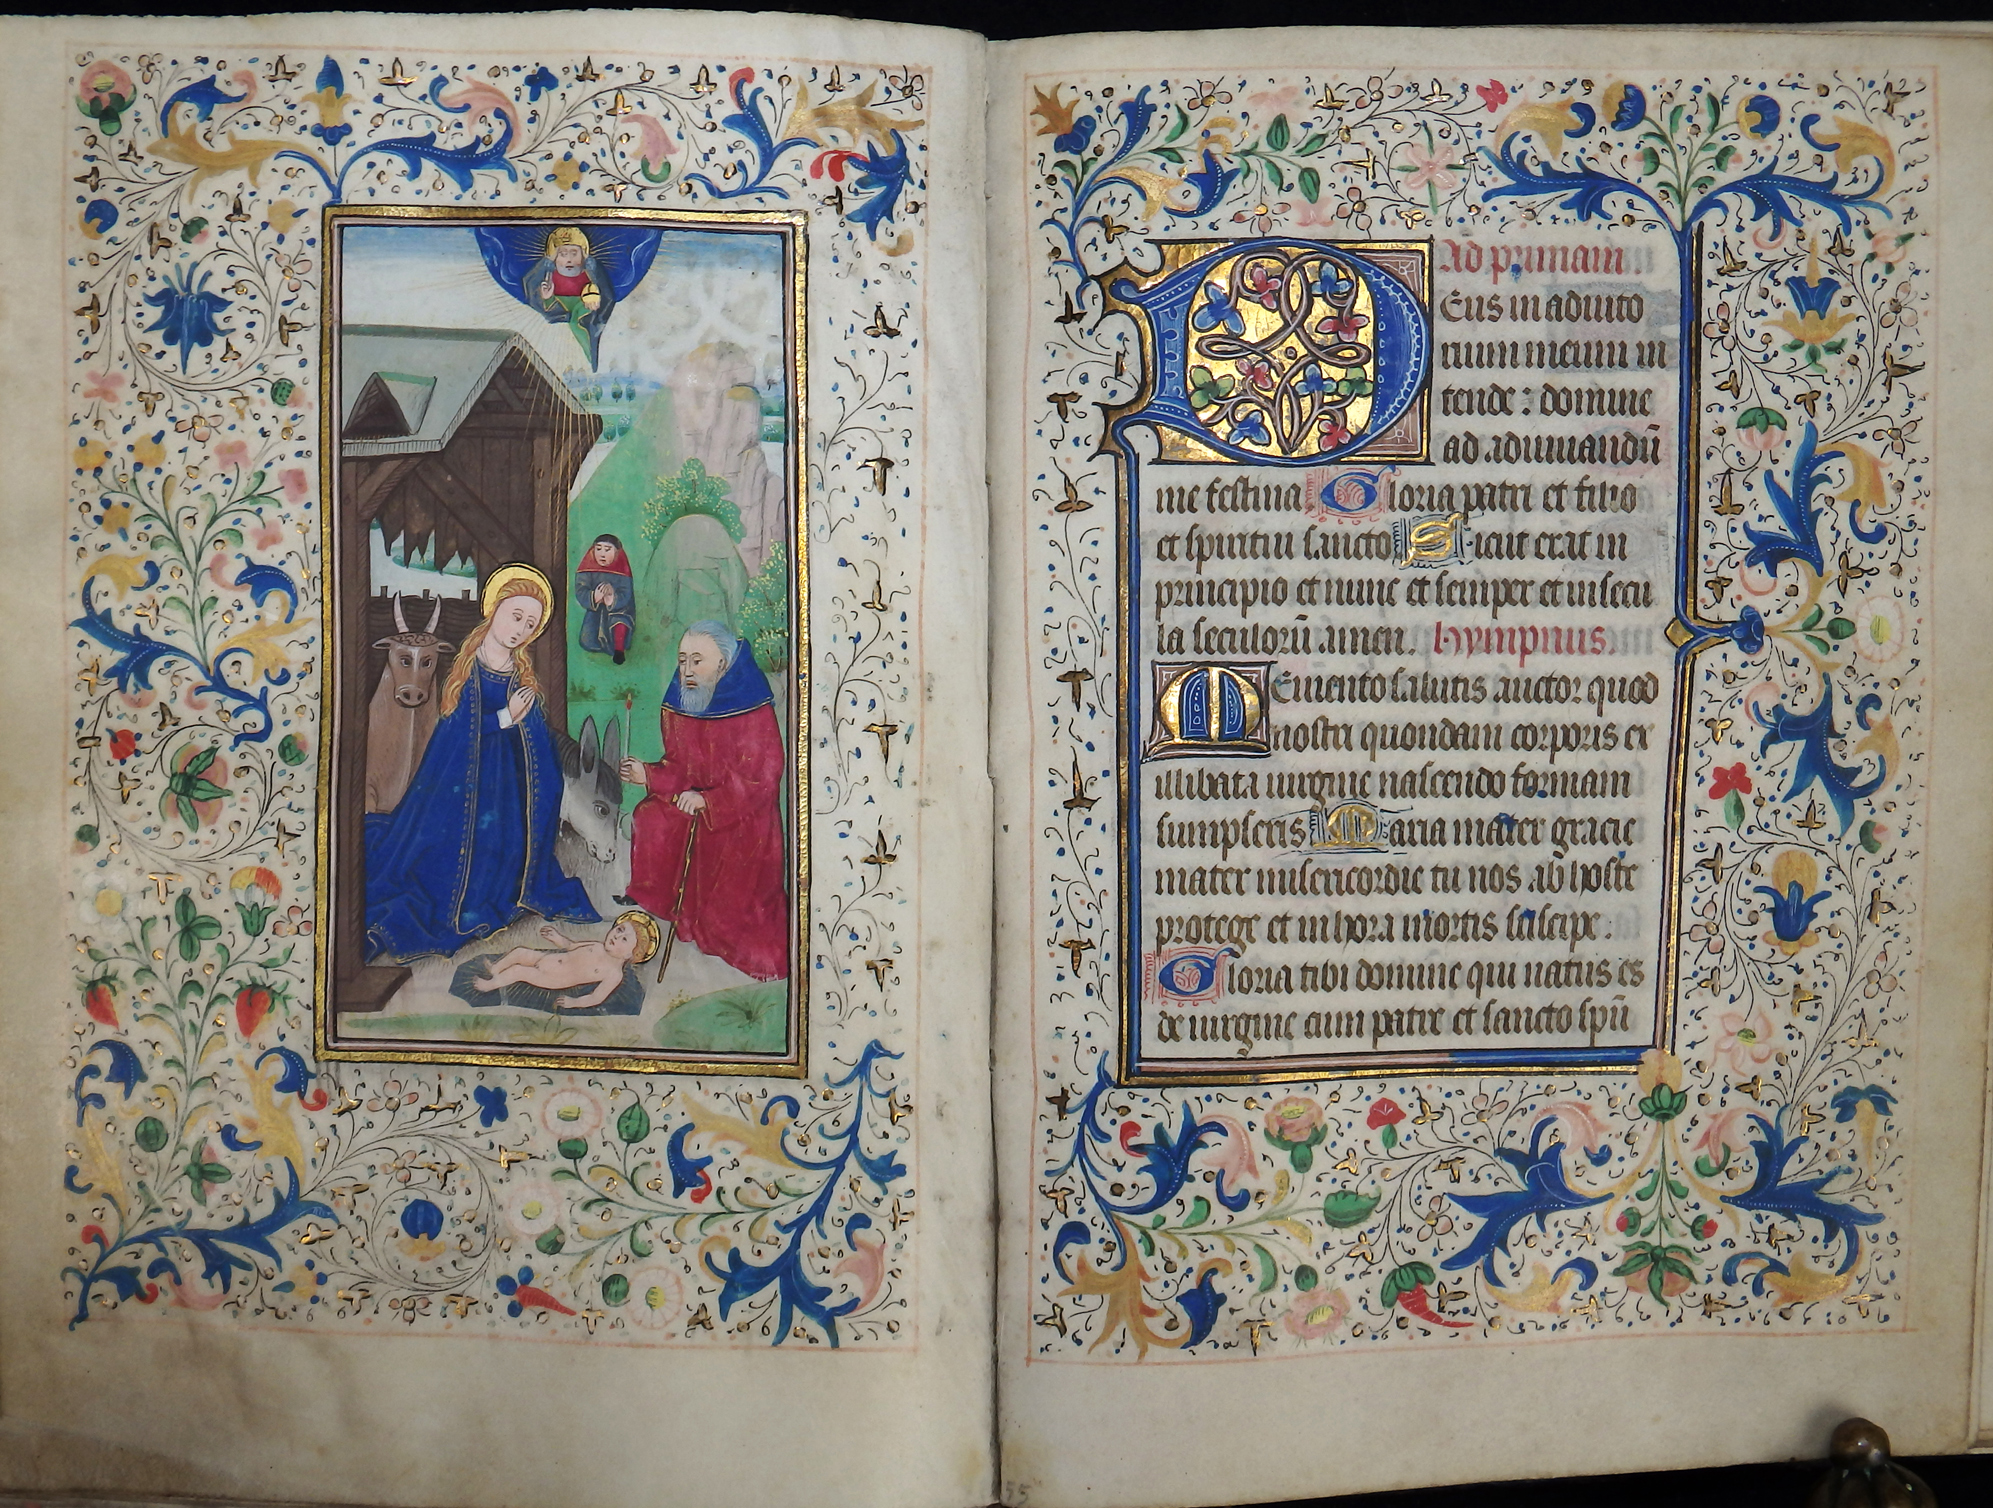 Ad primam
Deus in adiuto
rium meum in
tende : domine
ad adiuuandū
me festina Gloria patri et filio
et spiritui sancto Sicut erat in
principio et nunc et semper et in secu
la seculorū amen. hympnus.
Memento salutis auctor quod
nostri quondam corporis ex
illibata uirgine nascendo formam
sumpseris Maria mater gracie
mater misericordie tu nos ab hoste
protege et in hora mortis suscipe.
Gloria tibi domine qui natus es
de uirgine cum patre et sancto spū
55